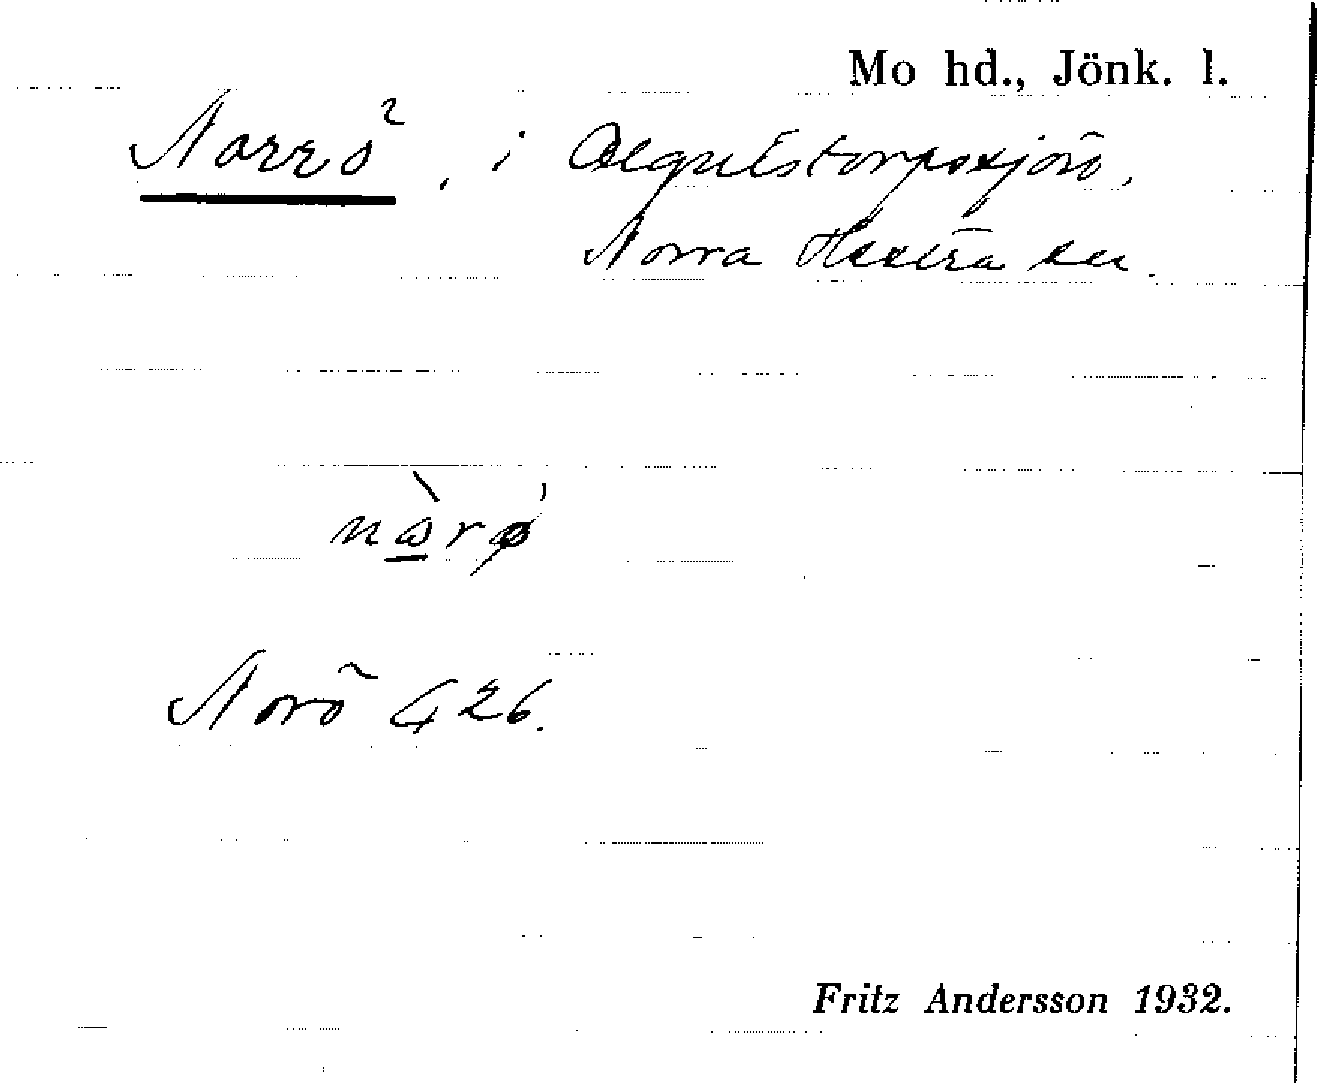 Mo hd., Jönk. l.
Norrö², i Algutstorpasjön,
Norra Hestra sn.
Norö G 26.
Fritz Andersson 1932.